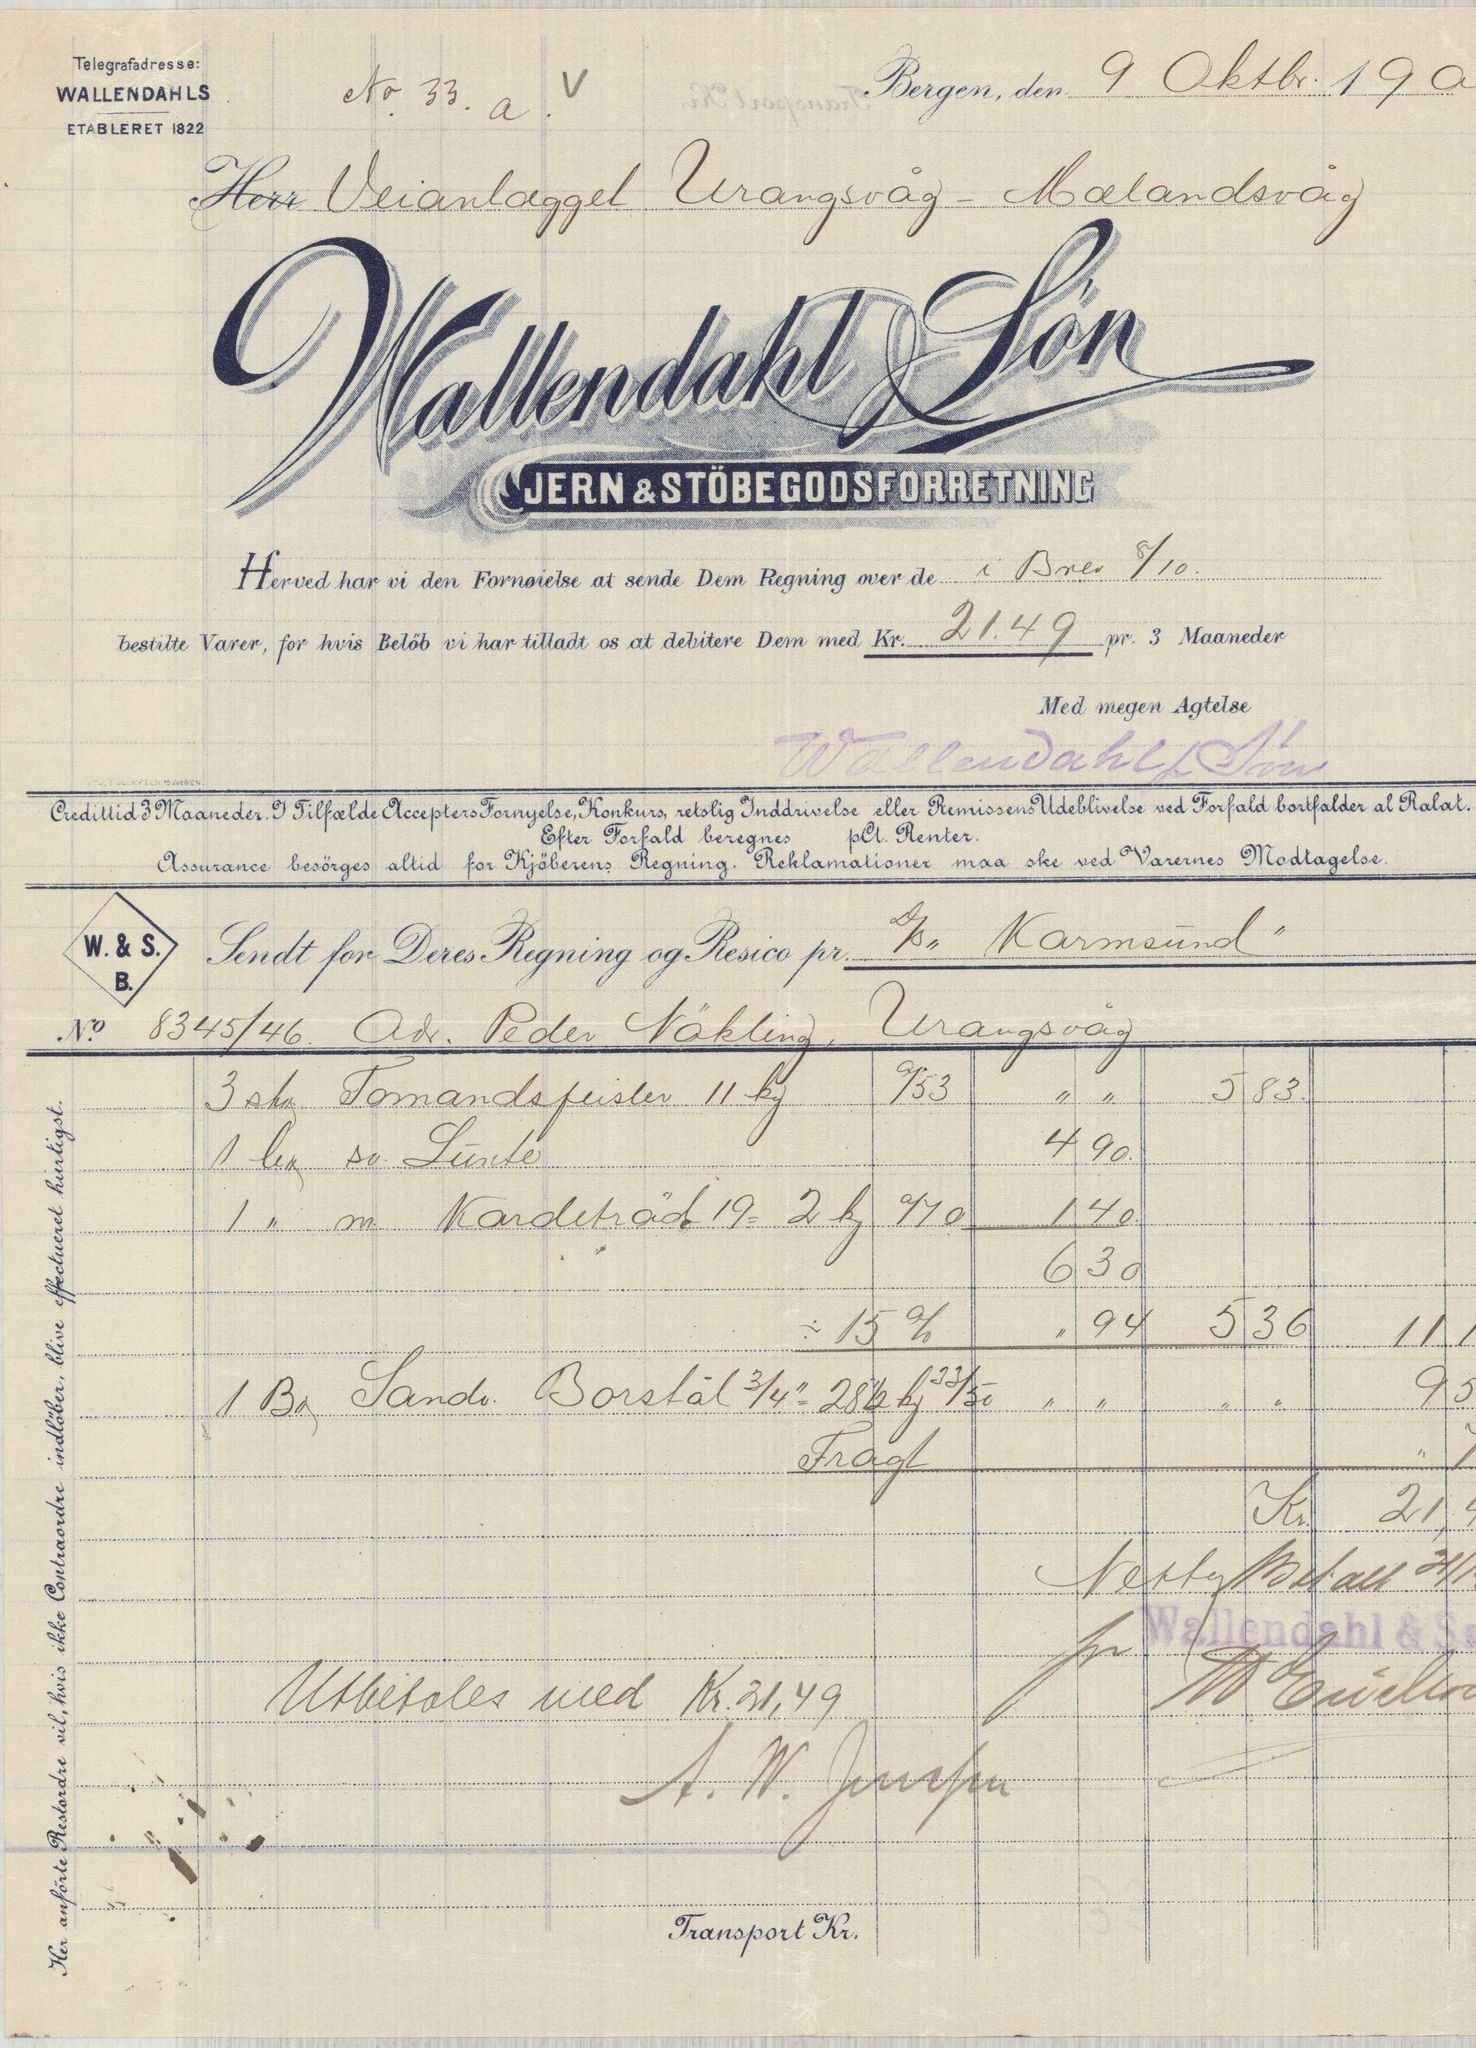 Telegrafadresse:
WALLENDAHLS
ETABLERET 1822
No 33. a. V
Bergen, den 9 Oktbr. 190
Herr Veianlægget Urangsvåg - Mælandsvåg
Wallendahl & Sön
JERN & STÖBEGODSFORRETNING
Herved har vi den Fornøielse at sende Dem Regning over de i Brev 8/10.
bestilte Varer, for hvis Belöb vi har tilladt os at debitere Dem med Kr. 21.49 pr. 3 Maaneder
Med megen Agtelse
Wallendahl & Søn
Credittid 3 Maaneder. I Tilfælde Accepters Fornyelse, Konkurs, retslig Inddrivelse eller Remissens Udeblivelse ved Forfald bortfalder al Rabat.
Efter Forfald beregnes pCt. Renter.
Assurance besörges altid for Kjöberens Regning. Reklamationer maa ske ved Varernes Modtagelse.
W. & S.
B.
Sendt for Deres Regning og Resico pr. D/S „Karmsund"
No 8345/46. Adr. Peder Nökling, Urangsvåg
3 stk Tomandsfeisler 11 kg a/53 " " 5 83.
1 bx sv. Lunte 4 90.
1 " m Kardetråd 19 = 2 kg a/70 1 40.
6 30
÷ 15 % " 94 5 36 11 1
1 Bx Sandv. Borstål 3/4" = 28½ kg 33/50 " " " " 9 5
Fragt "
Kr. 21,4
Netto Betalt
pr Wallendahl & Sø
Utbetales med Kr. 21,49
A. W.
Transport Kr.
Her anförte Restordre vil, hvis ikke Contraordre indlöber, blive effectueret hurtigst.